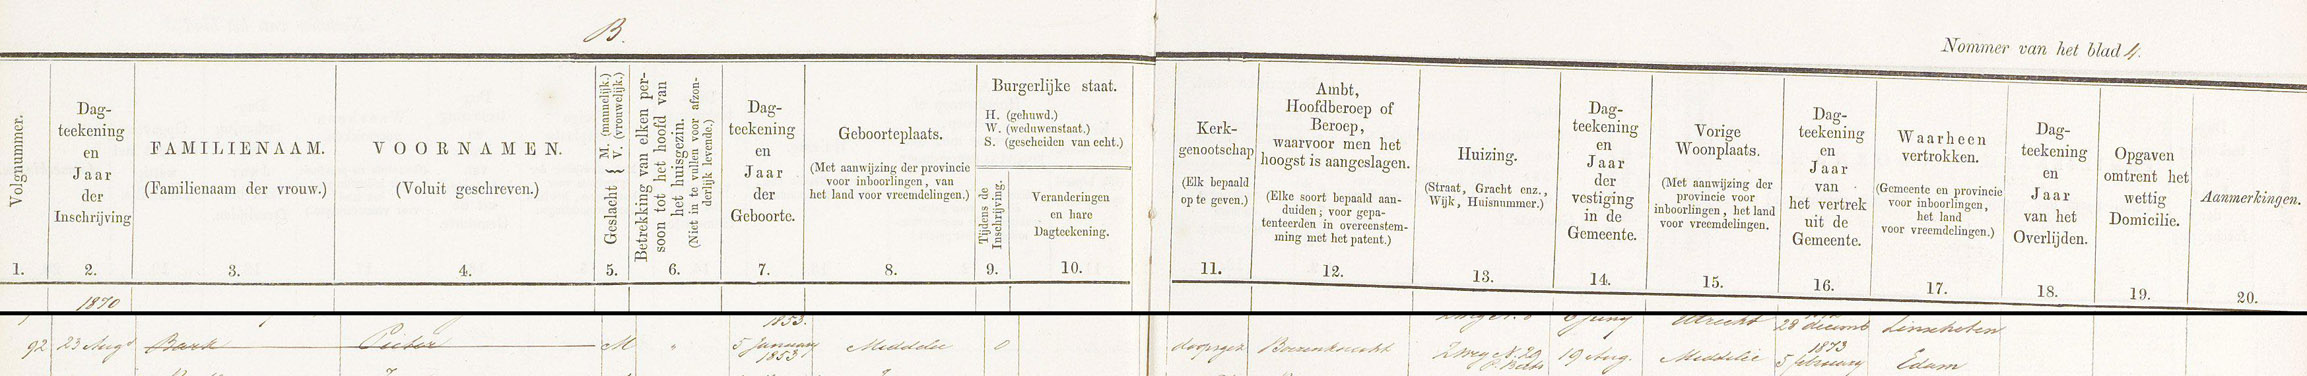 B.
Nommer van het blad 4.
Volgnummer.
Dag-
teekening
en
Jaar
der
Inschrijving
FAMILIENAAM.
(Familienaam der vrouw.)
VOORNAMEN.
(Voluit geschreven.)
Geslacht { M. (mannelijk.) V. (vrouwelijk.)
Betrekking van elken per-
soon tot het hoofd van
het huisgezin.
(Niet in te vullen voor afzon-
derlijk levende.)
Dag-
teekening
en
Jaar
der
Geboorte.
Geboorteplaats.
(Met aanwijzing der provincie
voor inboorlingen, van
het land voor vreemdelingen.)
Burgerlijke staat.
H. (gehuwd.)
W. (weduwenstaat.)
S. (gescheiden van echt.)
Tijdens de
Inschrijving.
Veranderingen
en hare
Dagteekening.
Kerk-
genootschap
(Elk bepaald
op te geven.)
Ambt,
Hoofdberoep of
Beroep,
waarvoor men het
hoogst is aangeslagen.
(Elke soort bepaald aan-
duiden; voor gepa-
tenteerden in overeenstem-
ming met het patent.)
Huizing.
(Straat, Gracht enz.,
Wijk, Huisnummer.)
Dag-
teekening
en
Jaar
der
vestiging
in de
Gemeente.
Vorige
Woonplaats.
(Met aanwijzing der
provincie voor
inboorlingen, het land
voor vreemdelingen.)
Dag-
teekening
en
Jaar
van
het vertrek
uit de
Gemeente.
Waarheen
vertrokken.
(Gemeente en provincie
voor inboorlingen,
het land
voor vreemdelingen.)
Dag-
teekening
en
Jaar
van het
Overlijden.
Opgaven
omtrent het
wettig
Domicilie.
Aanmerkingen.
1. 2. 3. 4. 5. 6. 7. 8. 9. 10. 11. 12. 13. 14. 15. 16. 17. 18. 19. 20.
1870
1853.
6 Juny Utrecht 28 decemb Linschoten
92 23 Augs Bark Pieter M " 5 January Middelie O doopsgez Boerenknecht Zweg N. 29 19 Aug. Middelie 1873 Edam
1853 5 february